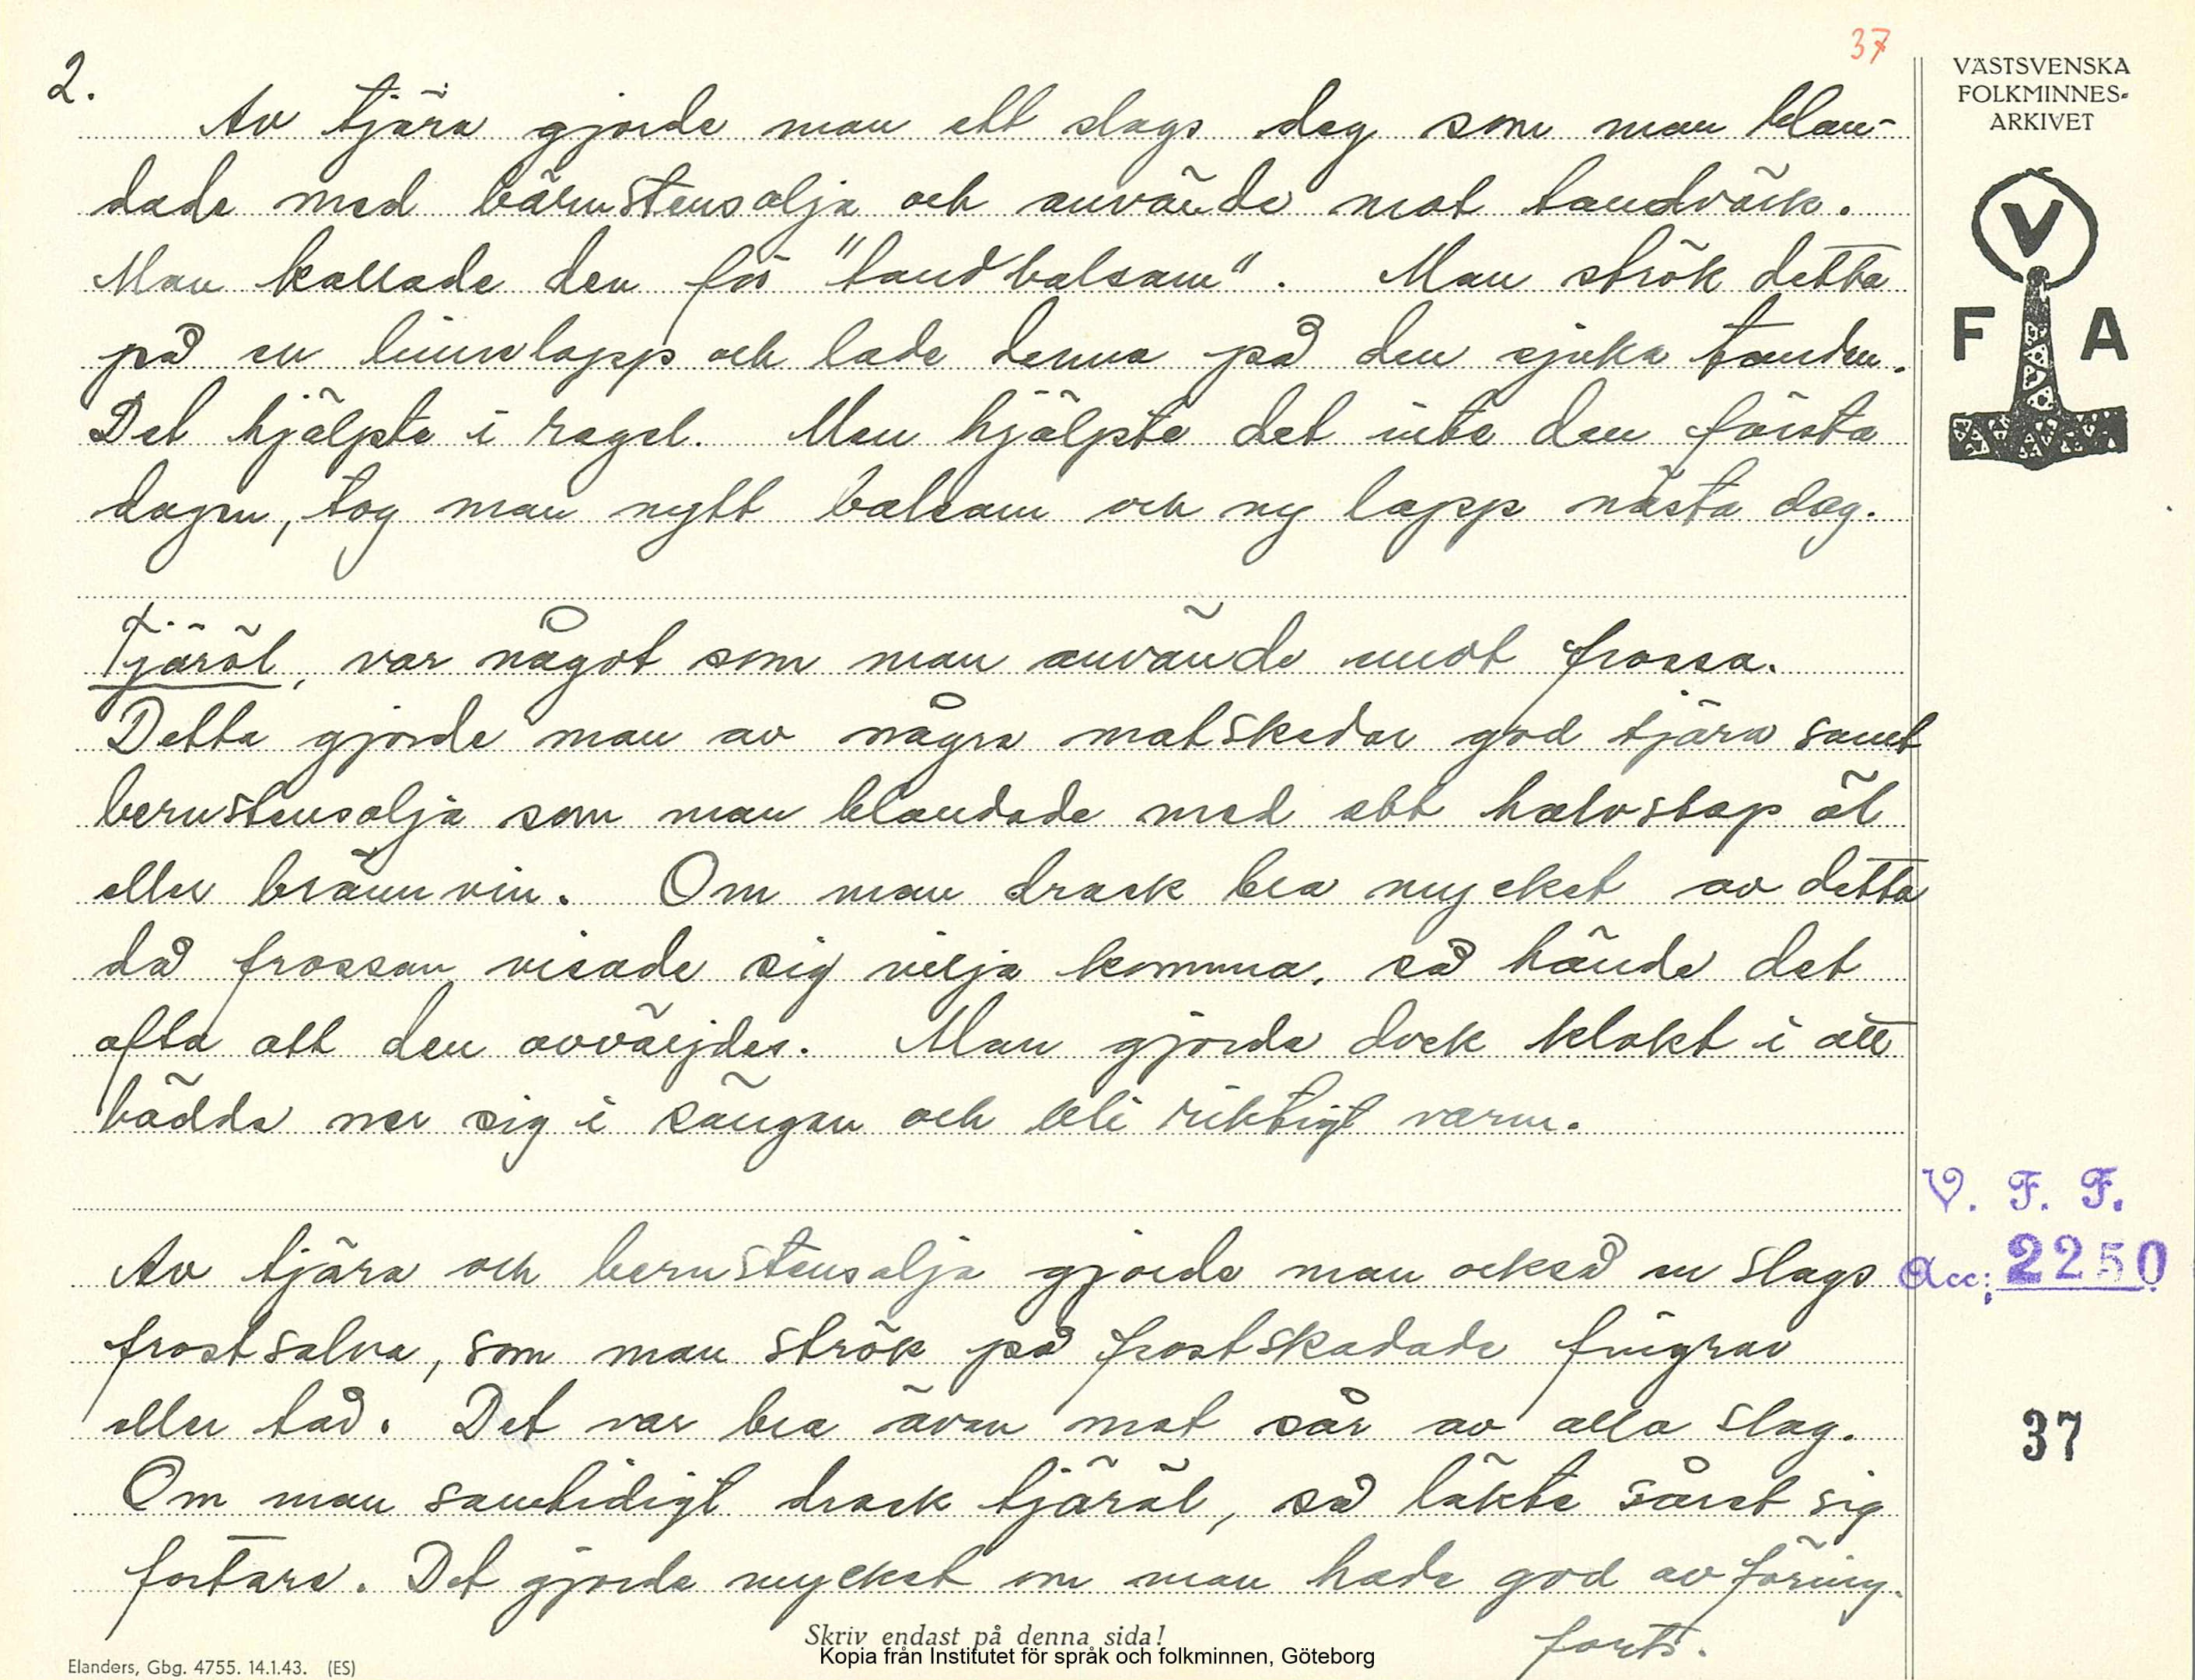 37
2.
Av tjära gjorde man ett slags deg som man blan-
dade med bärnstensolja och använde mot tandvärk.
Man kallade den för "tandbalsam". Man strök detta
på en linnelapp och lade denna på den sjuka tanden.
Det hjälpte i regel. Men hjälpte det inte den första
dagen, tog man nytt balsam och ny lapp nästa dag.
Tjäröl, var något som man använde emot frossa.
Detta gjorde man av några matskedar god tjära samt
bernstensolja som man blandade med ett halvstop öl
eller brännvin. Om man drack bra mycket av detta
då frossan visade sig vilja komma, så hände det
ofta att den avvärjdes. Man gjorde dock klokt i att
bädda ner sig i sängen och bli riktigt varm.
Av tjära och bernstensolja gjorde man också en slags
frostsalva, som man strök på frostskadade fingrar
eller tår. Det var bra även mot sår av alla slag.
Om man samtidigt drack tjäröl, så läkte såret sig
fortare. Det gjorde mycket om man hade god avföring.
forts.
VÄSTSVENSKA
FOLKMINNES-
ARKIVET
V
F A
V. F. F.
Acc: 2250
37
Skriv endast på denna sida!
Kopia från Institutet för språk och folkminnen, Göteborg
Elanders, Gbg. 4755. 14.1.43. (ES)